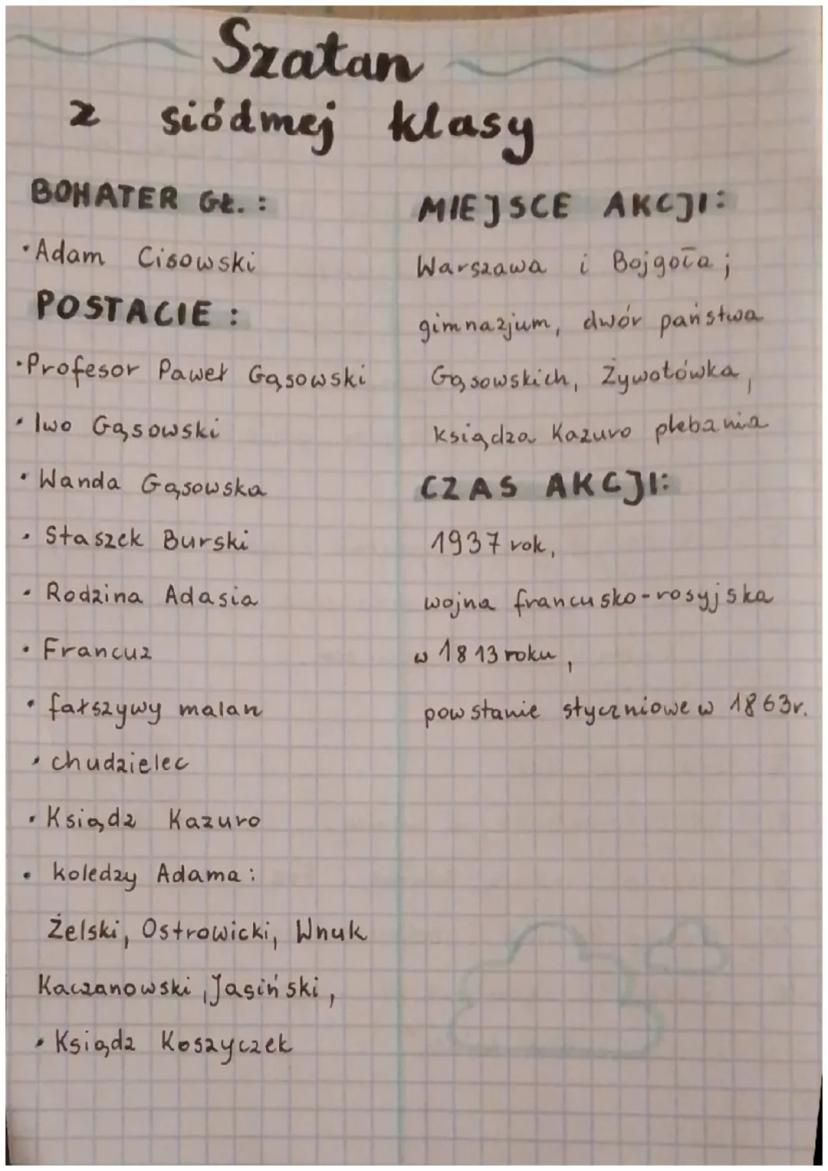 Szatan
z siódmej klasy
BOHATER GŁ.:
• Adam Cisowski
POSTACIE:
• Profesor Paweł Gąsowski
• Iwo Gąsowski
• Wanda Gąsowska
• Staszek Burski
• Rodzina Adasia
• Francuz
• fałszywy malarz
• chudzielec
• Ksiądz Kazuro
• koledzy Adama:
Żelski, Ostrowicki, Wnuk
Kaczanowski, Jasiński,
• Ksiądz Koszyczek
MIEJSCE AKCJI:
Warszawa i Bejgoła;
gimnazjum, dwór państwa
Gąsowskich, Żywotówka,
księdza Kazuro plebania
CZAS AKCJI:
1937 rok,
wojna francusko-rosyjska
w 1813 roku,
powstanie styczniowe w 1863r.